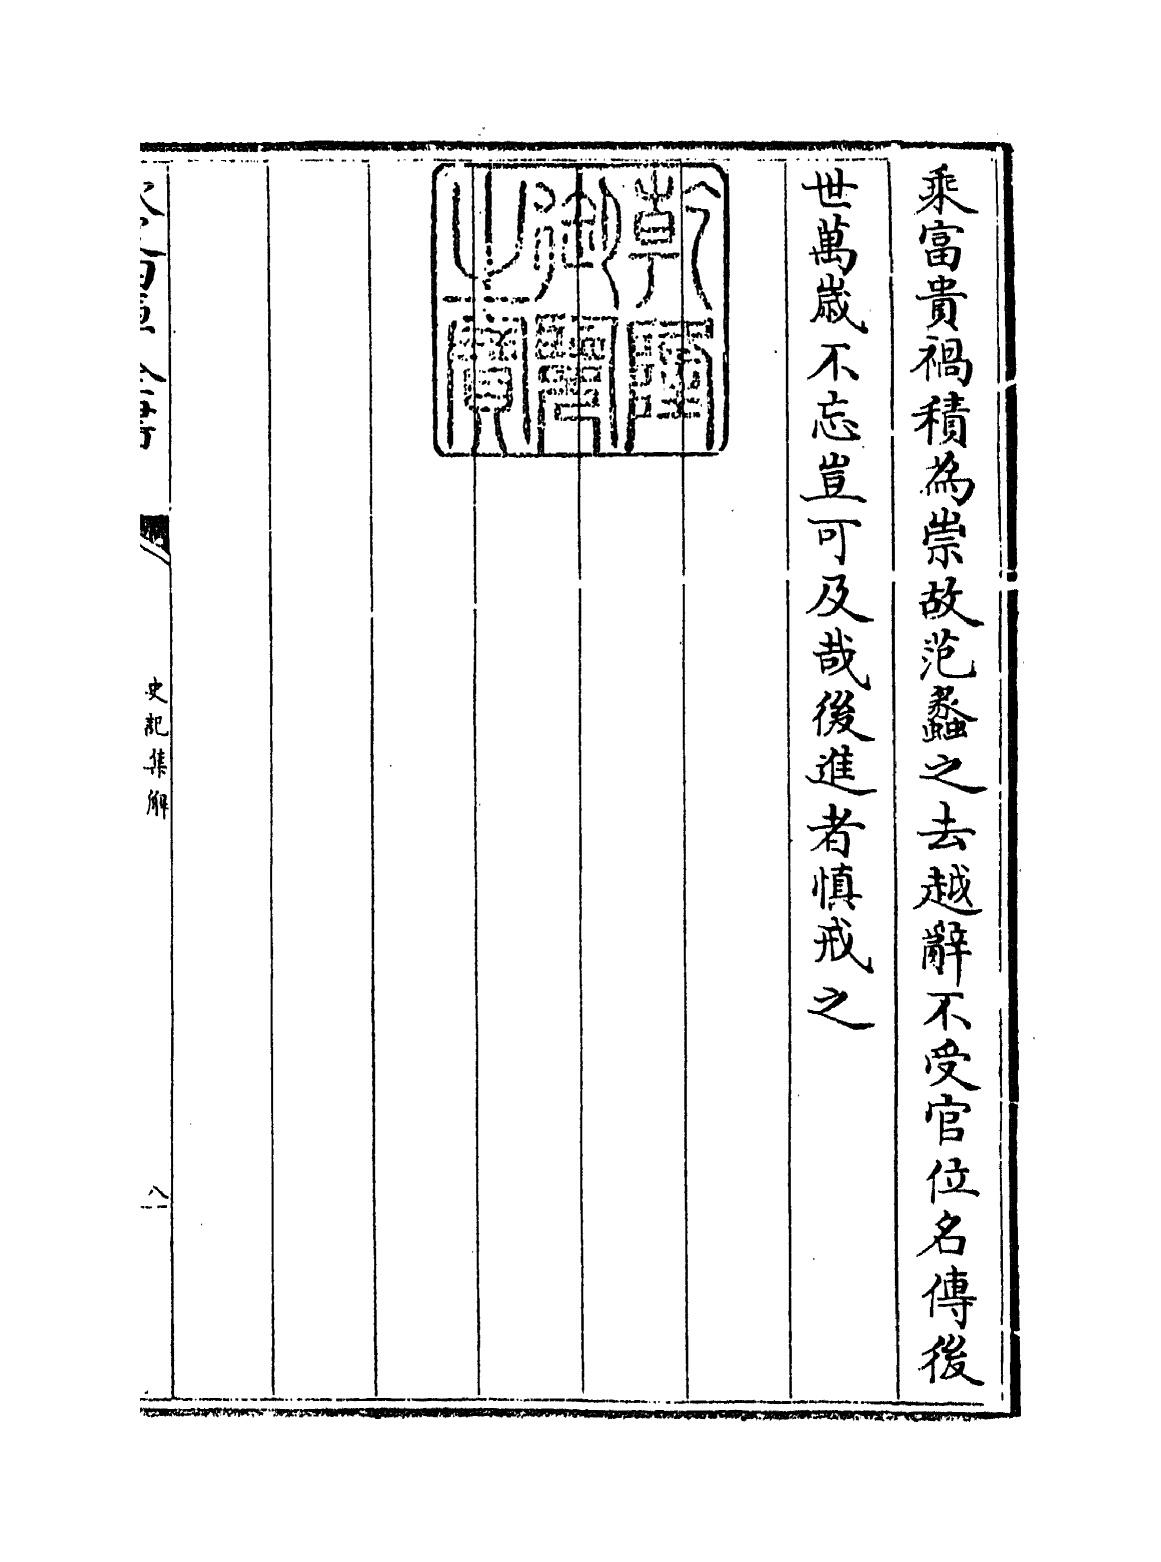 乘富貴禍積為祟故范蠡之去越辭不受官位名傳後
世萬歲不忘豈可及哉後進者慎戒之
乾隆御覽之寶
史記集解
八